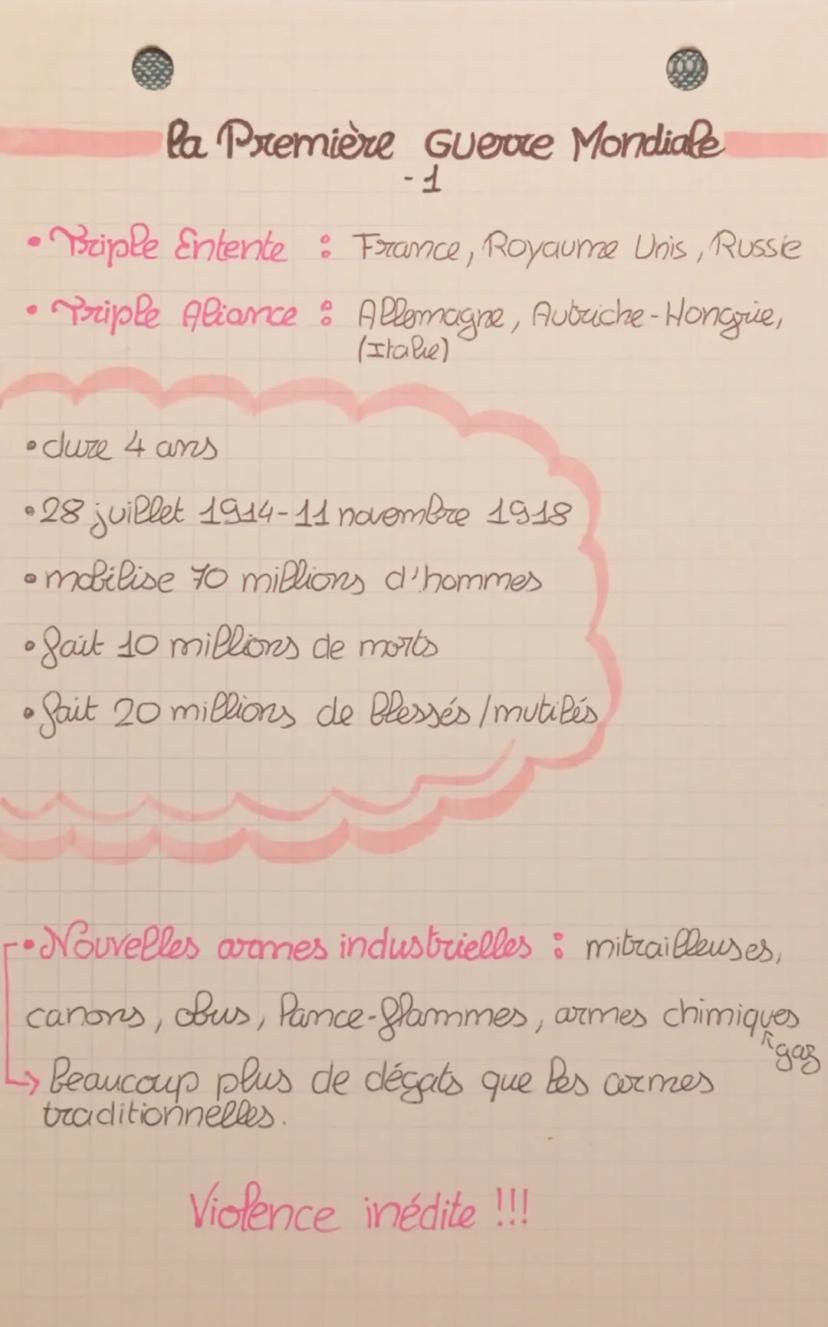 la Première Guerre Mondiale
- 1
• Triple Entente : France, Royaume Unis, Russie
• Triple Aliance : Allemagne, Autriche-Hongrie,
(Italie)
• dure 4 ans
• 28 juillet 1914-11 novembre 1918
• mobilise 70 millions d'hommes
• fait 10 millions de morts
• fait 20 millions de blessés/mutilés
• Nouvelles armes industrielles : mitrailleuses,
canons, obus, lance-flammes, armes chimiques
gaz
→ Beaucoup plus de dégats que les armes
traditionnelles.
Violence inédite !!!